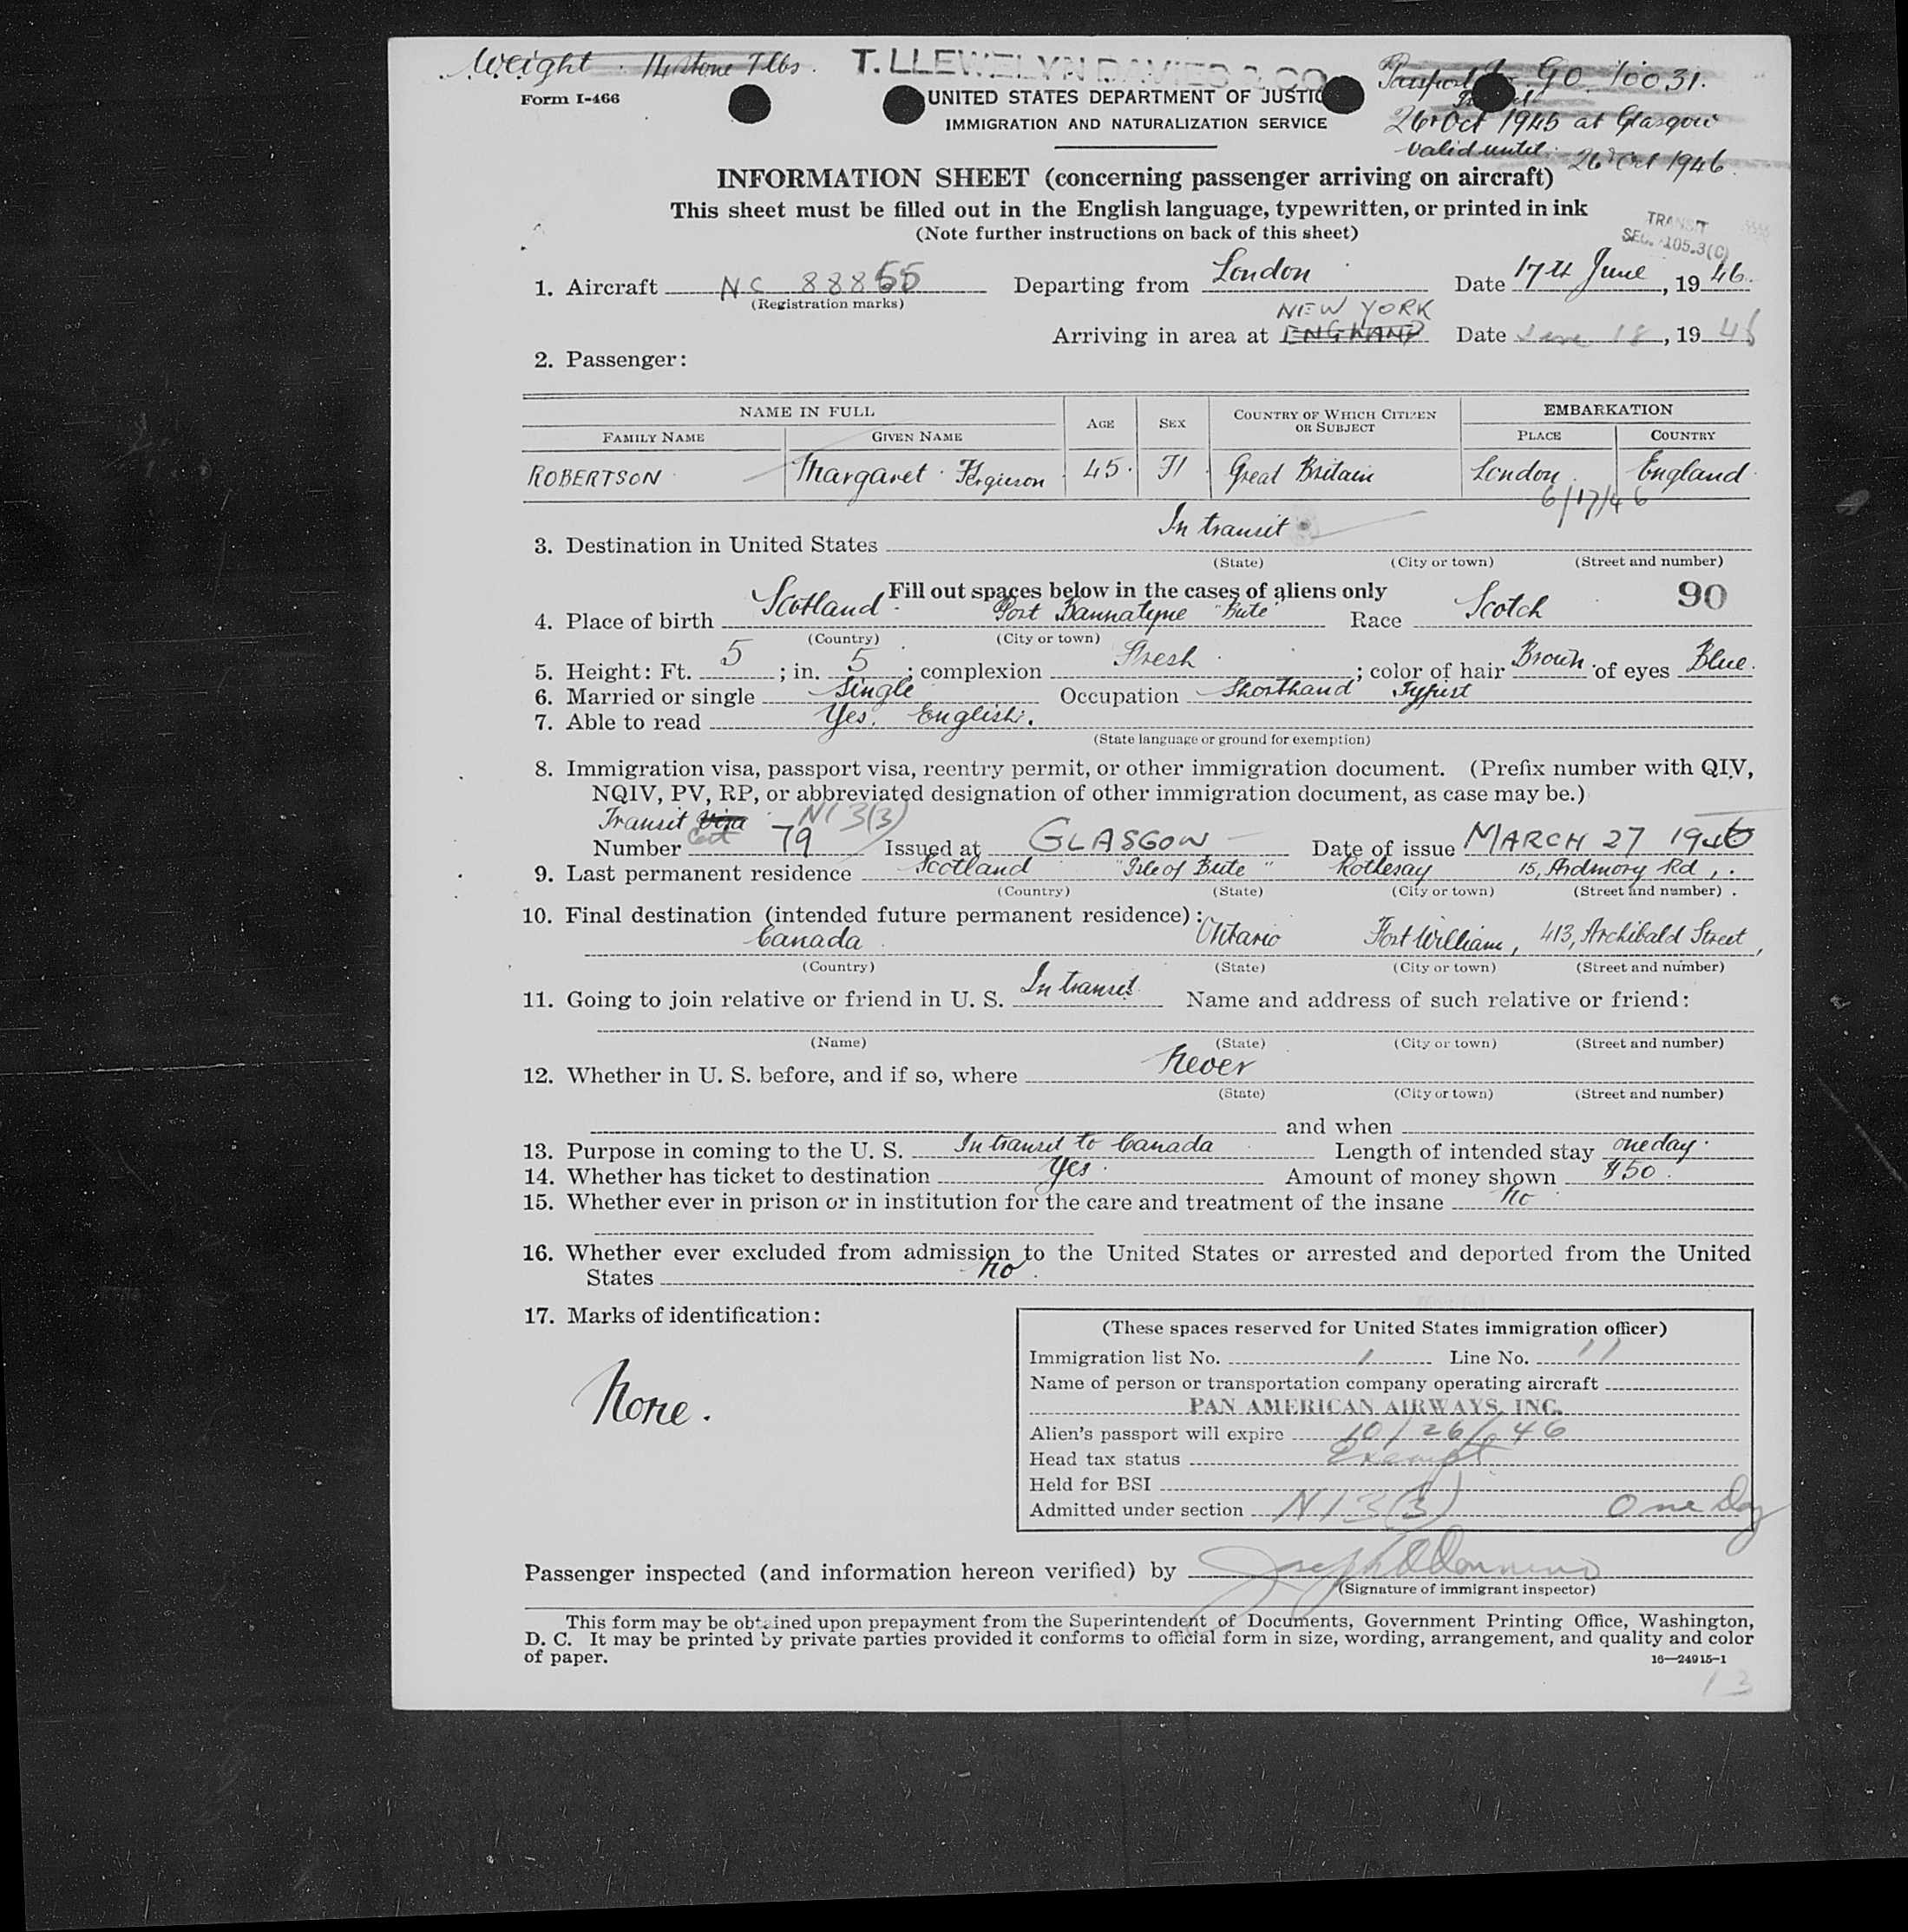 Weight . 14 stone 7 lbs. T. LLEWELYN DAVIES & CO. Passport No. GO 10031.
Form I-466
UNITED STATES DEPARTMENT OF JUSTICE
26 Oct 1945 at Glasgow
IMMIGRATION AND NATURALIZATION SERVICE
Valid until 26 Oct 1946.
INFORMATION SHEET (concerning passenger arriving on aircraft)
This sheet must be filled out in the English language, typewritten, or printed in ink
(Note further instructions on back of this sheet)
TRANSIT
SEC. 105.3(C)
1. Aircraft NC 88855 Departing from London Date 17th June, 1946.
(Registration marks)
NEW YORK
Arriving in area at ENGLAND Date June 18, 1946
2. Passenger:
NAME IN FULL AGE SEX COUNTRY OF WHICH CITIZEN OR SUBJECT EMBARKATION
FAMILY NAME GIVEN NAME PLACE COUNTRY
ROBERTSON Margaret Ferguson 45. F. Great Britain London England
6/17/46
3. Destination in United States In transit
(State) (City or town) (Street and number)
Fill out spaces below in the cases of aliens only
90
4. Place of birth Scotland Port Bannatyne "Bute" Race Scotch
(Country) (City or town)
5. Height: Ft. 5; in. 5; complexion Fresh; color of hair Brown of eyes Blue.
6. Married or single Single Occupation Shorthand Typist
7. Able to read Yes. English.
(State language or ground for exemption)
8. Immigration visa, passport visa, reentry permit, or other immigration document. (Prefix number with QIV,
NQIV, PV, RP, or abbreviated designation of other immigration document, as case may be.)
Transit Visa N13(3)
Number 79 Issued at GLASGOW Date of issue MARCH 27 1946
9. Last permanent residence Scotland "Isle of Bute" Rothesay 15, Ardmory Rd,.
(Country) (State) (City or town) (Street and number)
10. Final destination (intended future permanent residence):
Canada Ontario Fort William, 413, Archibald Street,
(Country) (State) (City or town) (Street and number)
11. Going to join relative or friend in U. S. In transit Name and address of such relative or friend:
(Name) (State) (City or town) (Street and number)
12. Whether in U. S. before, and if so, where Never
(State) (City or town) (Street and number)
and when
13. Purpose in coming to the U. S. In transit to Canada Length of intended stay one day.
14. Whether has ticket to destination Yes. Amount of money shown $50.
15. Whether ever in prison or in institution for the care and treatment of the insane No
16. Whether ever excluded from admission to the United States or arrested and deported from the United
States No.
17. Marks of identification:
None.
(These spaces reserved for United States immigration officer)
Immigration list No. 1 Line No. 11
Name of person or transportation company operating aircraft
PAN AMERICAN AIRWAYS, INC.
Alien's passport will expire 10/26/46
Head tax status Exempt
Held for BSI
Admitted under section N13(3) One Day
Passenger inspected (and information hereon verified) by
(Signature of immigrant inspector)
This form may be obtained upon prepayment from the Superintendent of Documents, Government Printing Office, Washington,
D. C. It may be printed by private parties provided it conforms to official form in size, wording, arrangement, and quality and color
of paper.
16—24915-1
13